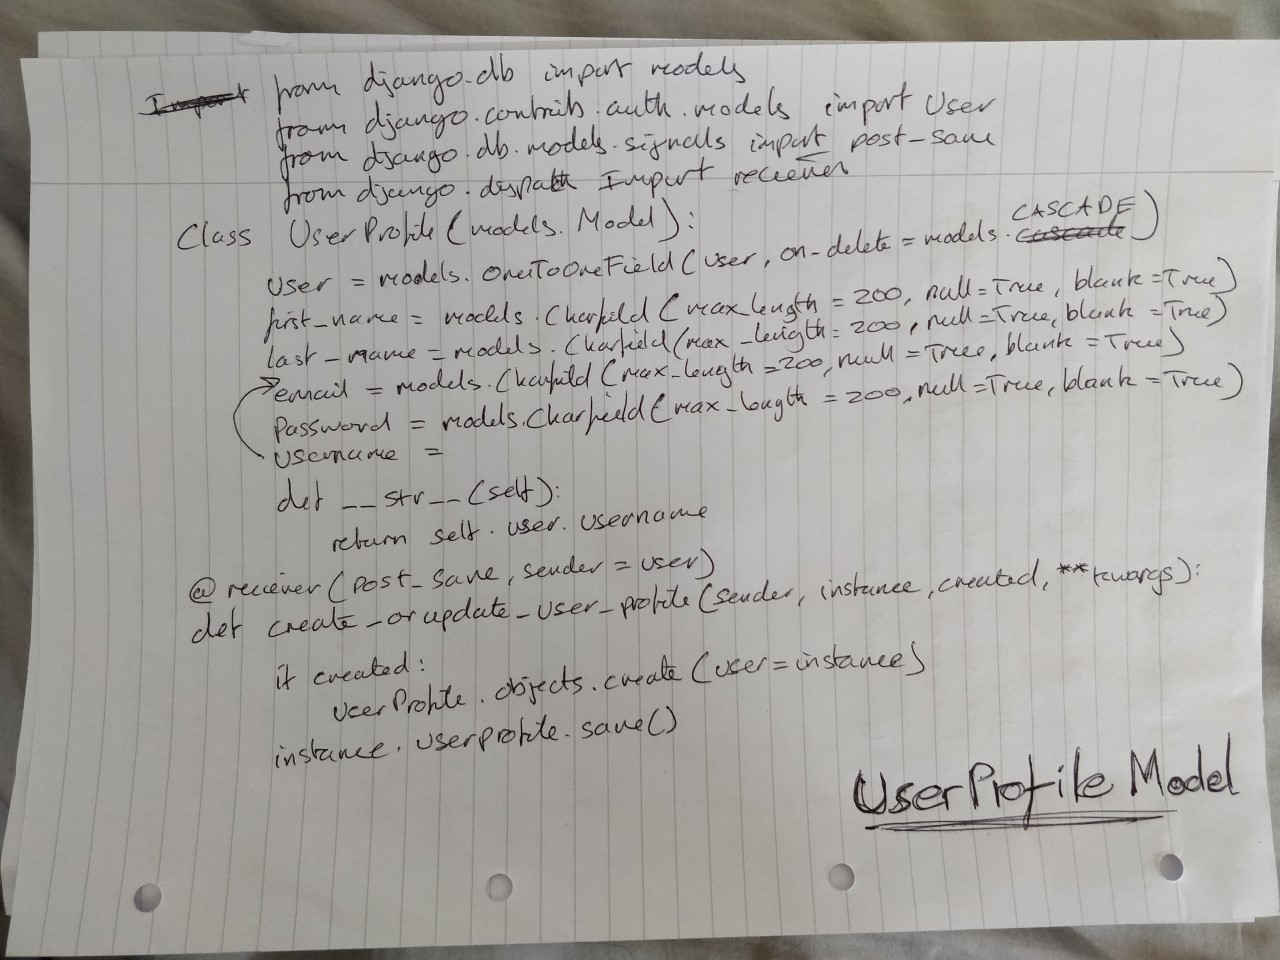 Import from django.db import models
from django.contrib.auth.models import User
from django.db.models.signals import post_save
from django.dispatch Import reciever
Class UserProfile (models.Model):
CASCADE
user = models.OneToOneField (user, on-delete = models.cascade)
first_name = models.Charfield (max_length = 200, null=True, blank=True)
last_name = models.Charfield (max_length = 200, null=True, blank=True)
email = models.Charfield (max_length = 200, null=True, blank=True)
Password = models.Charfield (max_length = 200, null=True, blank=True)
username =
def __str__ (self):
return self.user.username
@reciever (post_save, sender = user)
def create_or update_user_profile (sender, instance, created, **kwargs):
if created:
userProfile.objects.create (user=instance)
instance.userprofile.save()
UserProfile Model